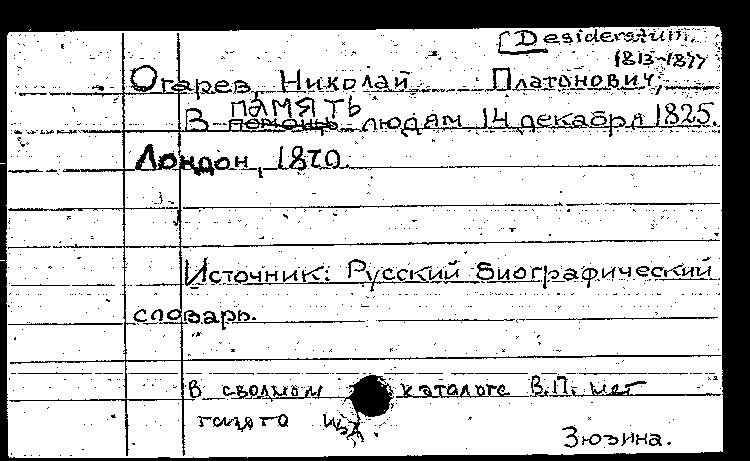 [Desideratum.
1813-1877
Огарев, Николай Платонович,
ПАМЯТЬ
В помощь людям 14 декабря 1825.
Лондон, 1870.
Источник: Русский биографический
словарь.
В сводном каталоге В.П. нет
такого
Зюзина.